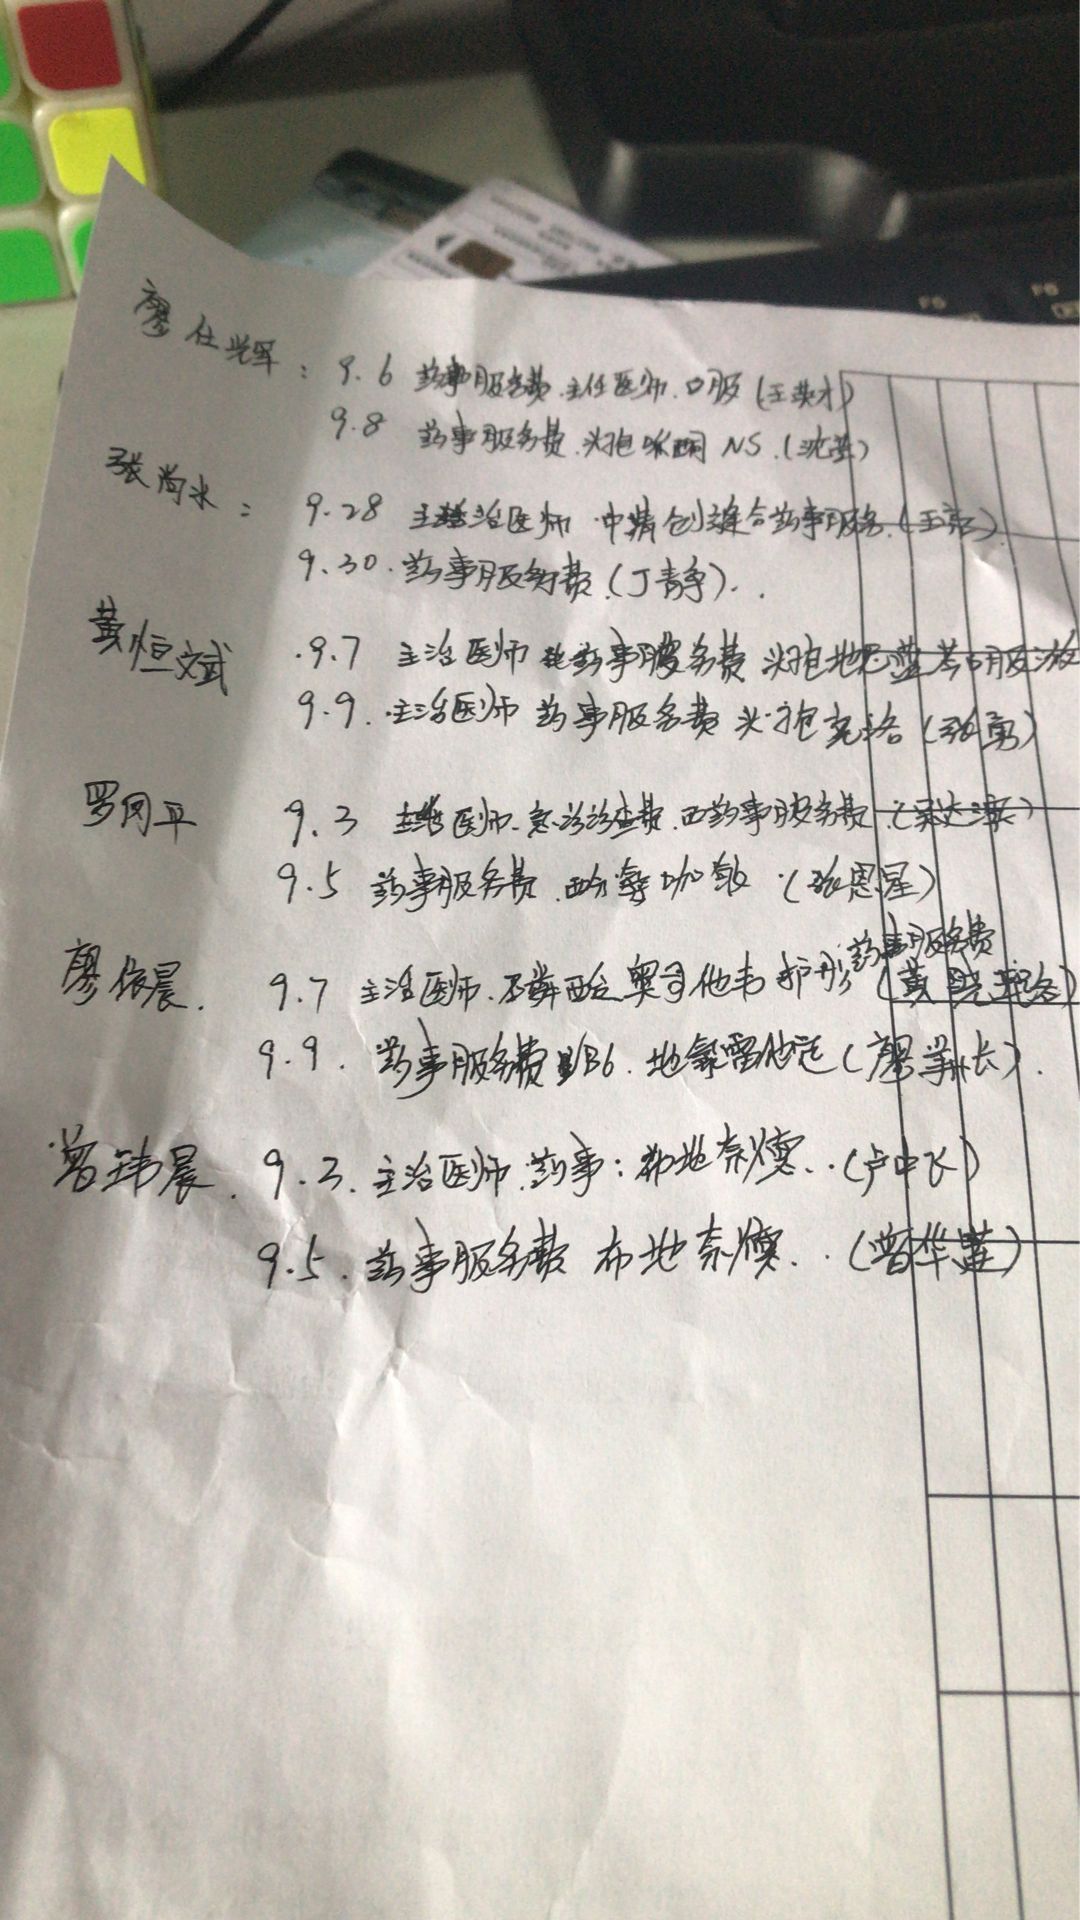 廖仕辉: 9.6 药事服务费.主任医师.口服(王英才)
9.8 药事服务费.头孢呋 NS.(沈
张尚水: 9.28 主治医师 中清创缝合药事服务.(王
9.30.药事服务费.(丁静)..
黄恒文斌 .9.7 主治医师 药事服务费 头孢地 口服
9.9.主治医师 药事服务费 头孢克洛(张勇)
罗冈平 9.3 医师.急诊诊查费.西药事服务费.(
9.5 药事服务费.西 咖敏.(张恩星)
药事服务费
廖依晨. 9.7 主治医师.磷酸奥司他韦 护彤(黄
9.9. 药事服务费 B6.地氯雷他定(廖 长).
曾玮晨. 9.3.主治医师.药事:布地奈德..(卢中飞)
9.5.药事服务费 布地奈德..(曾华莲)
F5
F6